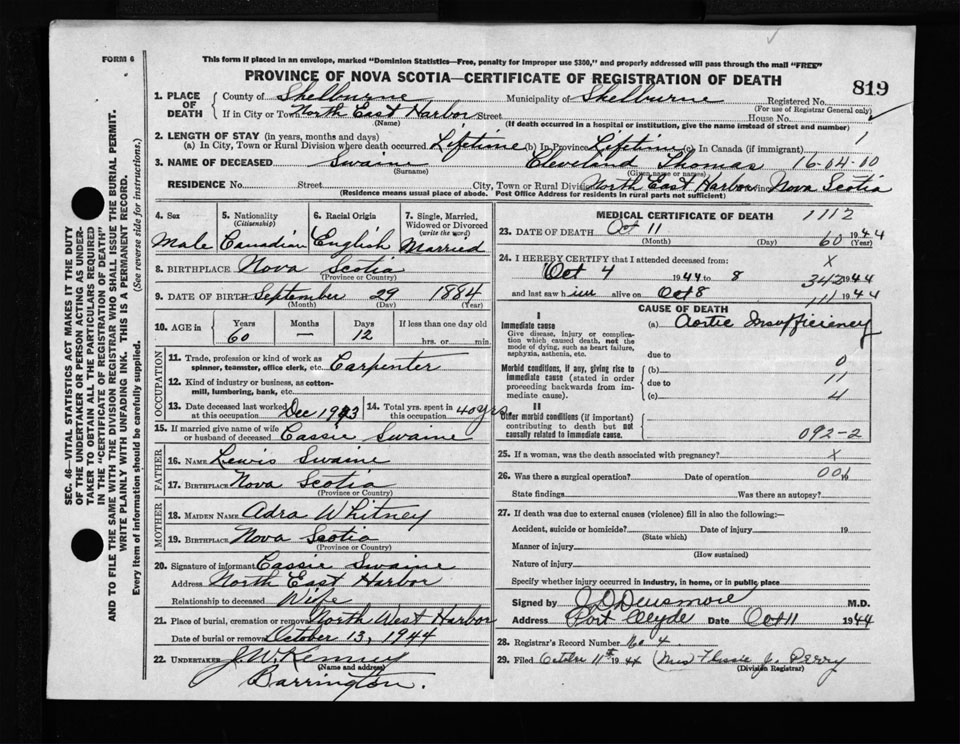 FORM 6
This form if placed in an envelope, marked "Dominion Statistics—Free, penalty for improper use $300," and properly addressed will pass through the mail "FREE"
PROVINCE OF NOVA SCOTIA—CERTIFICATE OF REGISTRATION OF DEATH
819
SEC. 46—VITAL STATISTICS ACT MAKES IT THE DUTY
OF THE UNDERTAKER OR PERSON ACTING AS UNDER-
TAKER TO OBTAIN ALL THE PARTICULARS REQUIRED
IN THE "CERTIFICATE OF REGISTRATION OF DEATH"
AND TO FILE THE SAME WITH THE DIVISION REGISTRAR WHO SHALL ISSUE THE BURIAL PERMIT.
WRITE PLAINLY WITH UNFADING INK. THIS IS A PERMANENT RECORD.
Every item of information should be carefully supplied. (See reverse side for instructions.)
1. PLACE OF DEATH County of Shelburne Municipality of Shelburne Registered No.
(For use of Registrar General only)
If in City or Town North East Harbor Street House No.
(Name) (If death occurred in a hospital or institution, give the name instead of street and number)
2. LENGTH OF STAY (in years, months and days) 1
(a) In City, Town or Rural Division where death occurred Lifetime (b) In Province Lifetime (c) In Canada (if immigrant)
3. NAME OF DECEASED Swaine Cleveland Thomas 16-04-00
(Surname) (Given name or names)
RESIDENCE No. Street City, Town or Rural Division North East Harbor Province Nova Scotia
(Residence means usual place of abode. Post Office Address for residents in rural parts not sufficient)
4. Sex Male
5. Nationality (Citizenship) Canadian
6. Racial Origin English
7. Single, Married, Widowed or Divorced (write the word) Married
8. BIRTHPLACE Nova Scotia
(Province or Country)
9. DATE OF BIRTH September 29 1884
(Month) (Day) (Year)
10. AGE in Years 60 Months — Days 12 If less than one day old hrs. or min.
OCCUPATION
11. Trade, profession or kind of work as spinner, teamster, office clerk, etc. Carpenter
12. Kind of industry or business, as cotton-mill, lumbering, bank, etc.
13. Date deceased last worked at this occupation Dec 1943 14. Total yrs. spent in this occupation 40 yrs
15. If married give name of wife or husband of deceased Cassie Swaine
FATHER
16. NAME Lewis Swaine
17. BIRTHPLACE Nova Scotia
(Province or Country)
MOTHER
18. MAIDEN NAME Adra Whitney
19. BIRTHPLACE Nova Scotia
(Province or Country)
20. Signature of informant Cassie Swaine
Address North East Harbor
Relationship to deceased Wife
21. Place of burial, cremation or removal North West Harbor
Date of burial or removal October 13, 1944
22. UNDERTAKER J. W. Kenney
(Name and address)
Barrington.
MEDICAL CERTIFICATE OF DEATH 1112
23. DATE OF DEATH Oct 11 1944
(Month) (Day) 60 (Year)
24. I HEREBY CERTIFY that I attended deceased from: X
Oct 4 1944 to 8 342 1944
and last saw him alive on Oct 8 111 1944
CAUSE OF DEATH
I
Immediate cause (a) Aortic Insufficiency
Give disease, injury or complication which caused death, not the mode of dying, such as heart failure, asphyxia, asthenia, etc.
due to
Morbid conditions, if any, giving rise to immediate cause (stated in order proceeding backwards from immediate cause).
(b) 0
due to 11
(c) 4
II
Other morbid conditions (if important) contributing to death but not causally related to immediate cause.
092-2
25. If a woman, was the death associated with pregnancy? X
26. Was there a surgical operation? Date of operation 19
State findings Was there an autopsy?
27. If death was due to external causes (violence) fill in also the following:—
Accident, suicide or homicide? Date of injury 19
(State which)
Manner of injury
(How sustained)
Nature of injury
Specify whether injury occurred in industry, in home, or in public place
Signed by J. D. Densmore M.D.
Address Port Clyde Date Oct 11 1944
28. Registrar's Record Number No 4.
29. Filed October 11th 1944 (Mrs Perry
(Division Registrar)